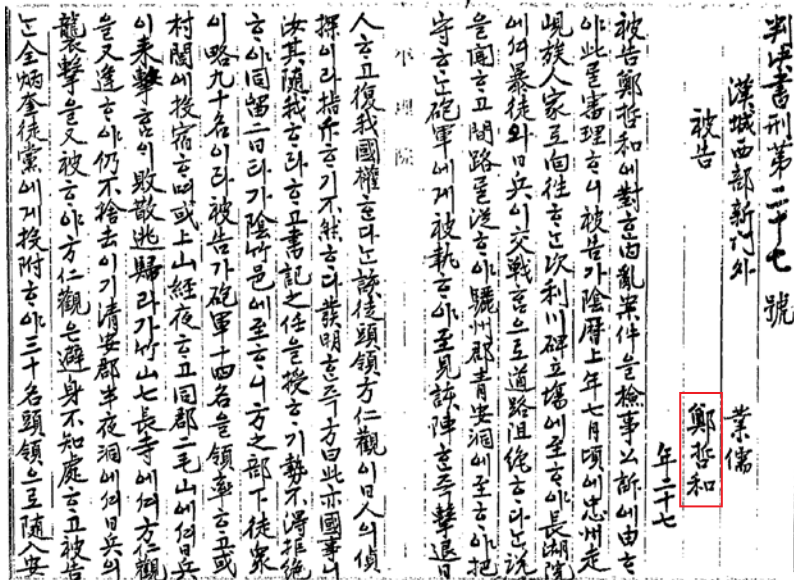 判決書刑第二十七號
漢城西部新門外 業儒
被告 鄭哲和
年二十七
被告鄭哲和에對ᄒᆞᆫ內亂案件을檢事公訴에由ᄒᆞ
야此ᄅᆞᆯ審理ᄒᆞ니被告가陰曆上年七月頃에忠州走
峴族人家로向往ᄒᆞᄂᆞᆫ次利川碑立場에至ᄒᆞ야長湖院
에셔暴徒와日兵이交戰ᄒᆞᆷ으로道路阻絶ᄒᆞ다ᄂᆞᆫ說
을聞ᄒᆞ고間路ᄅᆞᆯ從ᄒᆞ야驪州郡青安洞에至ᄒᆞ야把
守ᄒᆞᄂᆞᆫ砲軍에게被執ᄒᆞ야至見該陣ᄒᆞᆫ즉擊退日
平理院
人ᄒᆞ고復我國權ᄒᆞᆫ다ᄂᆞᆫ該徒頭領方仁觀이日人의偵
探이라指斥ᄒᆞ기不然ᄒᆞ다發明ᄒᆞᆫ즉方曰此亦國事니
汝其隨我ᄒᆞ라ᄒᆞ고書記之任을授ᄒᆞ기勢不得拒絶
ᄒᆞ야同留二日타가陰竹邑에至ᄒᆞ니方之部下徒衆
이略九十名이라被告가砲軍十四名을領率ᄒᆞ고或
村閭에投宿ᄒᆞ며或上山經夜ᄒᆞ고同郡二毛山에셔日兵
이來擊ᄒᆞᆷ의敗散逃歸라가竹山七長寺에셔方仁觀
을又逢ᄒᆞ야仍不捨去이기清安郡半夜洞에셔日兵의
襲擊을又被ᄒᆞ야方仁觀은避身不知處ᄒᆞ고被告
ᄂᆞᆫ全炳奎徒黨에게投附ᄒᆞ야三十名頭領으로隨入安